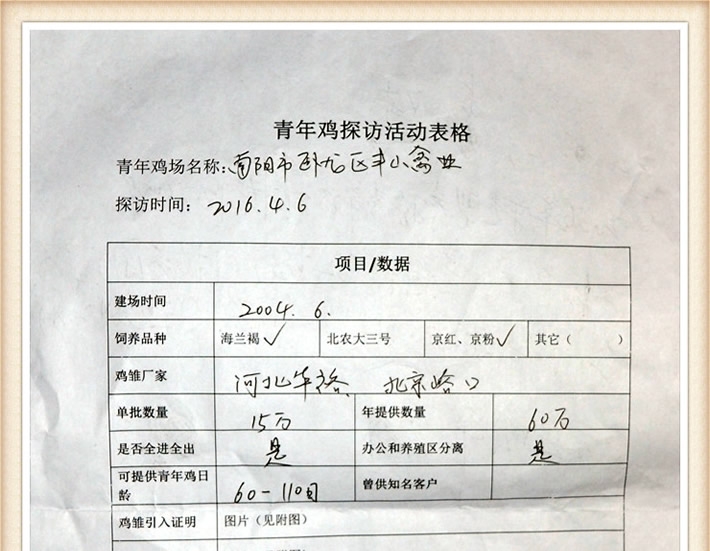 青年鸡探访活动表格
青年鸡场名称:南阳市卧龙区丰山禽业
探访时间: 2016.4.6
项目/数据
建场时间 2004.6.
饲养品种 海兰褐✓ 北农大三号 京红、京粉✓ 其它( )
鸡雏厂家 河北华裕 北京峪口
单批数量 15万 年提供数量 60万
是否全进全出 是 办公和养殖区分离 是
可提供青年鸡日龄 60-110日 曾供知名客户
鸡雏引入证明 图片(见附图)